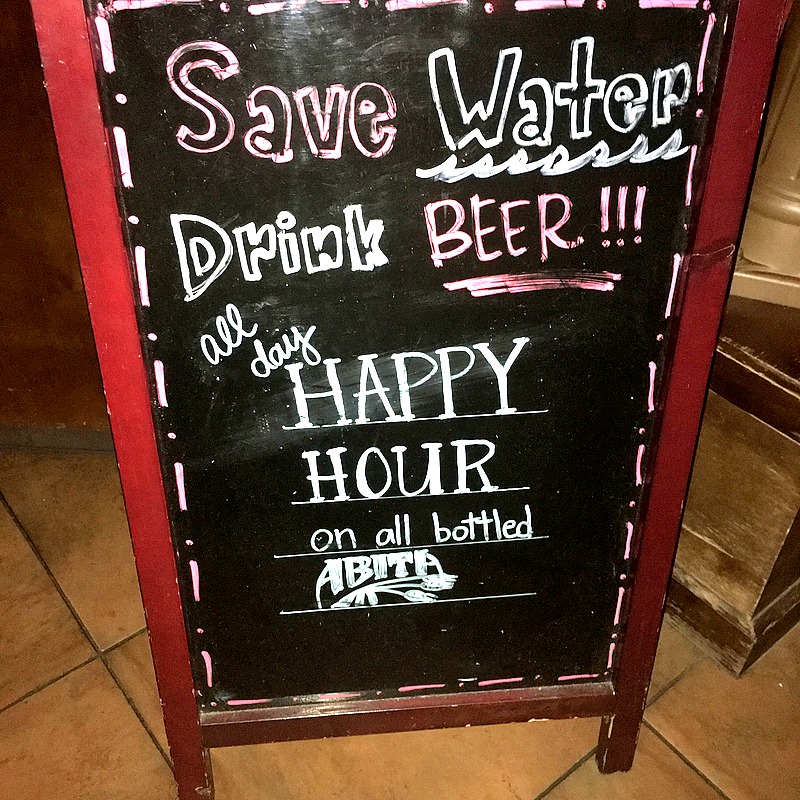 Save Water
Drink BEER!!!
all
day
HAPPY
HOUR
on all bottled
ABITA